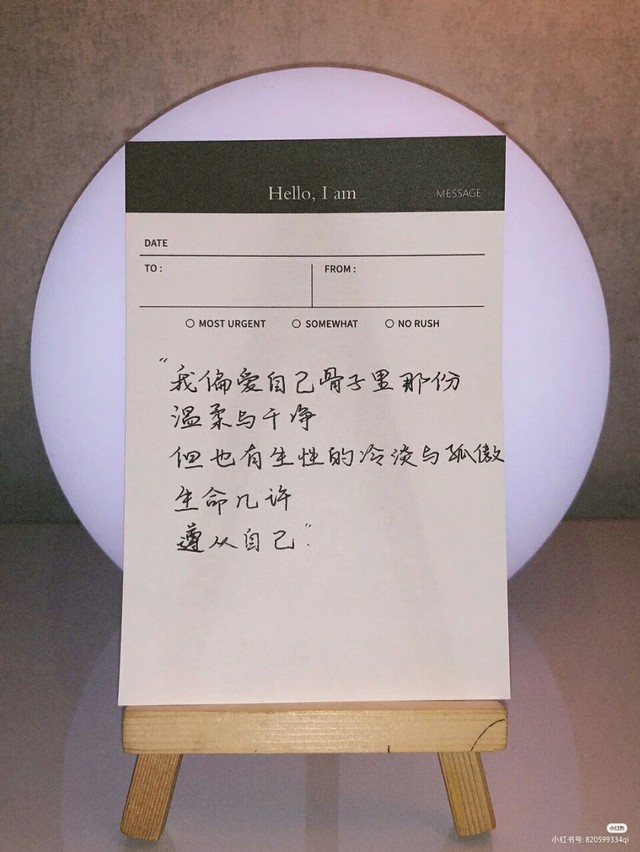 Hello, I am
MESSAGE
DATE
TO :
FROM :
MOST URGENT
SOMEWHAT
NO RUSH
“我偏爱自己骨子里那份
温柔与干净
但也有生性的冷淡与孤傲
生命几许
遵从自己”.
小红书
小红书号: 820599334qi